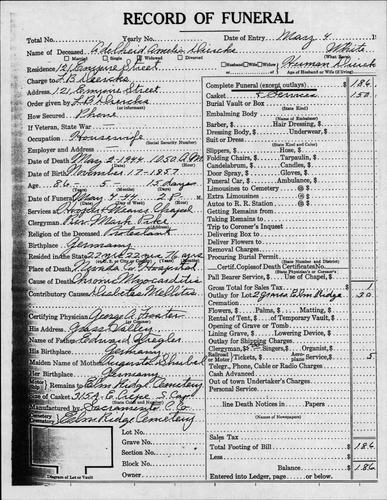 RECORD OF FUNERAL
Total No. Yearly No. Date of Entry May 4 19
Name of Deceased Adelheid Amelia Diercks White
Married Single Widowed Divorced (What Race)
Residence 121 Empire Street Husband Wife Widow Herman Dierck
Charge to L B Diercks Age of Husband or Wife (if living)
Address 121 Empire Street
Order given by L B Diercks
(or informant)
How Secured Phone
If Veteran, State War
Occupation Housewife
(Social Security Number)
Employer and Address
Date of Death May 2, 1944 10:50 A.M.
Date of Birth November 17-1857
Age 86 5 15 days
(Years) (Months) (Days)
Date of Funeral May 4-44 2 P.
Services at Hooper Weaver Chapel
Clergyman Rev. Mark
Religion of the Deceased Protestant
Birthplace Germany
Resided in the State 22 yrs 22 yrs 76 yrs
Place of Death Nevada Co Hospital
Cause of Death Chronic Myocarditis
Contributory Causes Diabetes Mellitus
Certifying Physician George A Foster
His Address Grass Valley
Name of Father Edward Kregler
His Birthplace Germany
Maiden Name of Mother Augusta
Her Birthplace Germany
Remains to Elm Ridge Cemetery
Size of Casket
(State Color and Number)
Manufactured by Sacramento C. Co
Cemetery Elm Ridge Cemetery
Lot No.
Grave No.
Section No.
Block No.
Owner
Diagram of Lot or Vault
Complete Funeral (except outlays) $ 186
Casket & Services 150
Burial Vault or Box
(State Kind)
Embalming Body
(Name of Embalmer)
Barber, $ Hair Dressing, $
Dressing Body, $ Underwear, $
Suit or Dress
(State Kind and Color)
Slippers, $ Hose, $
Folding Chairs, $ Tarpaulin, $
Candelabrum, $ Candles, $
Door Spray, $ Gloves, $
Funeral Car, $ Ambulance, $
Limousines to Cemetery @ $
Extra Limousines @ $
Autos to R. R. Station @ $
Getting Remains from
Taking Remains to
Trip to Coroner's Inquest
Delivering Box to
Deliver Flowers to
Removal Charges
Procuring Burial Permit
(State District and County)
Certif. Copies of Death Certificate
(State Physician's or Coroner's)
Pall Bearer Service, $ Use of Chapel, $
Gross Total for Sales Tax $ 1
Outlay for Lot 2 Graves Elm Ridge 30
Cremation
Flowers, $ Palms, $ Matting, $
Rental of Tent, $ of Temporary Vault, $
Opening of Grave or Tomb
Lining Grave, $ Lowering Device, $
Outlay for Shipping Charges
Clergyman, $ Singers, $ Organist, $
Railroad or Motor Tickets, $ Aeroplane Service, $ 5
Telegr., Phone, Cable or Radio Charges
Cash Advanced
Out of town Undertaker's Charges
Personal Service
line Death Notices in Papers
(Names of Newspapers)
Sales Tax
Total Footing of Bill $ 186
Less $
Balance $ 186
Entered into Ledger, page below.